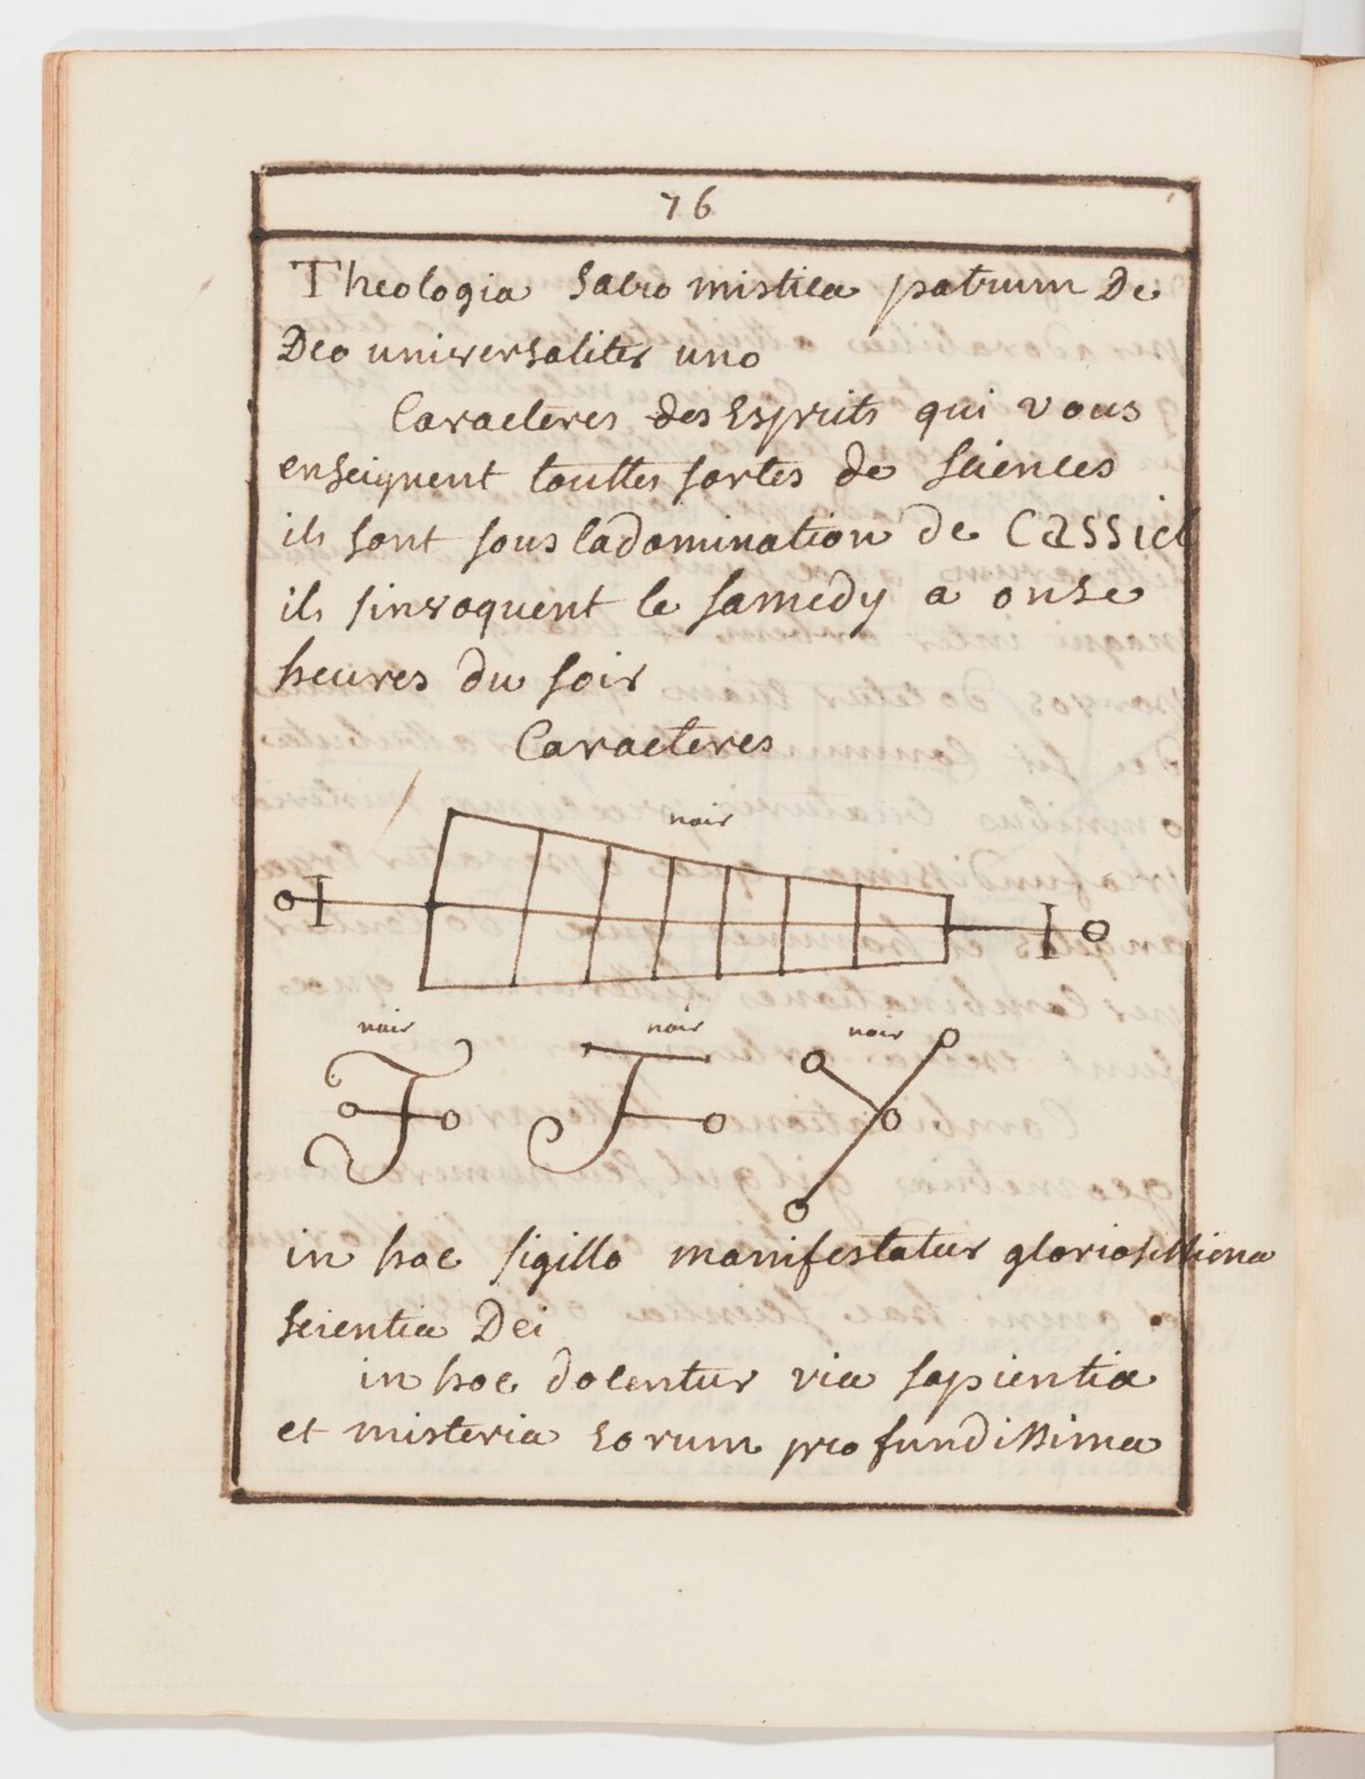 76
Theologia Sacro mistica patrum De
Deo universaliter uno
Caracteres des Esprits qui vous
enseignent touttes sortes de sciences
ils sont sous la domination de Cassiel
ils sinvoquent le samedy a onse
heures du soir
Caracteres
noir
noir noir noir
in hoc sigillo manifestatur gloriosissima
scientia Dei
in hoc docentur via sapientia
et misteria eorum profundissima